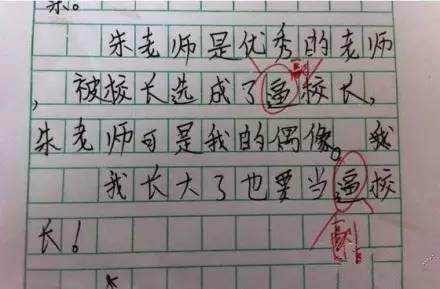 朱老师是优秀的老师
，被校长选成了逼校长，
朱老师可是我的偶像。我
我长大了也要当逼校
长！
副